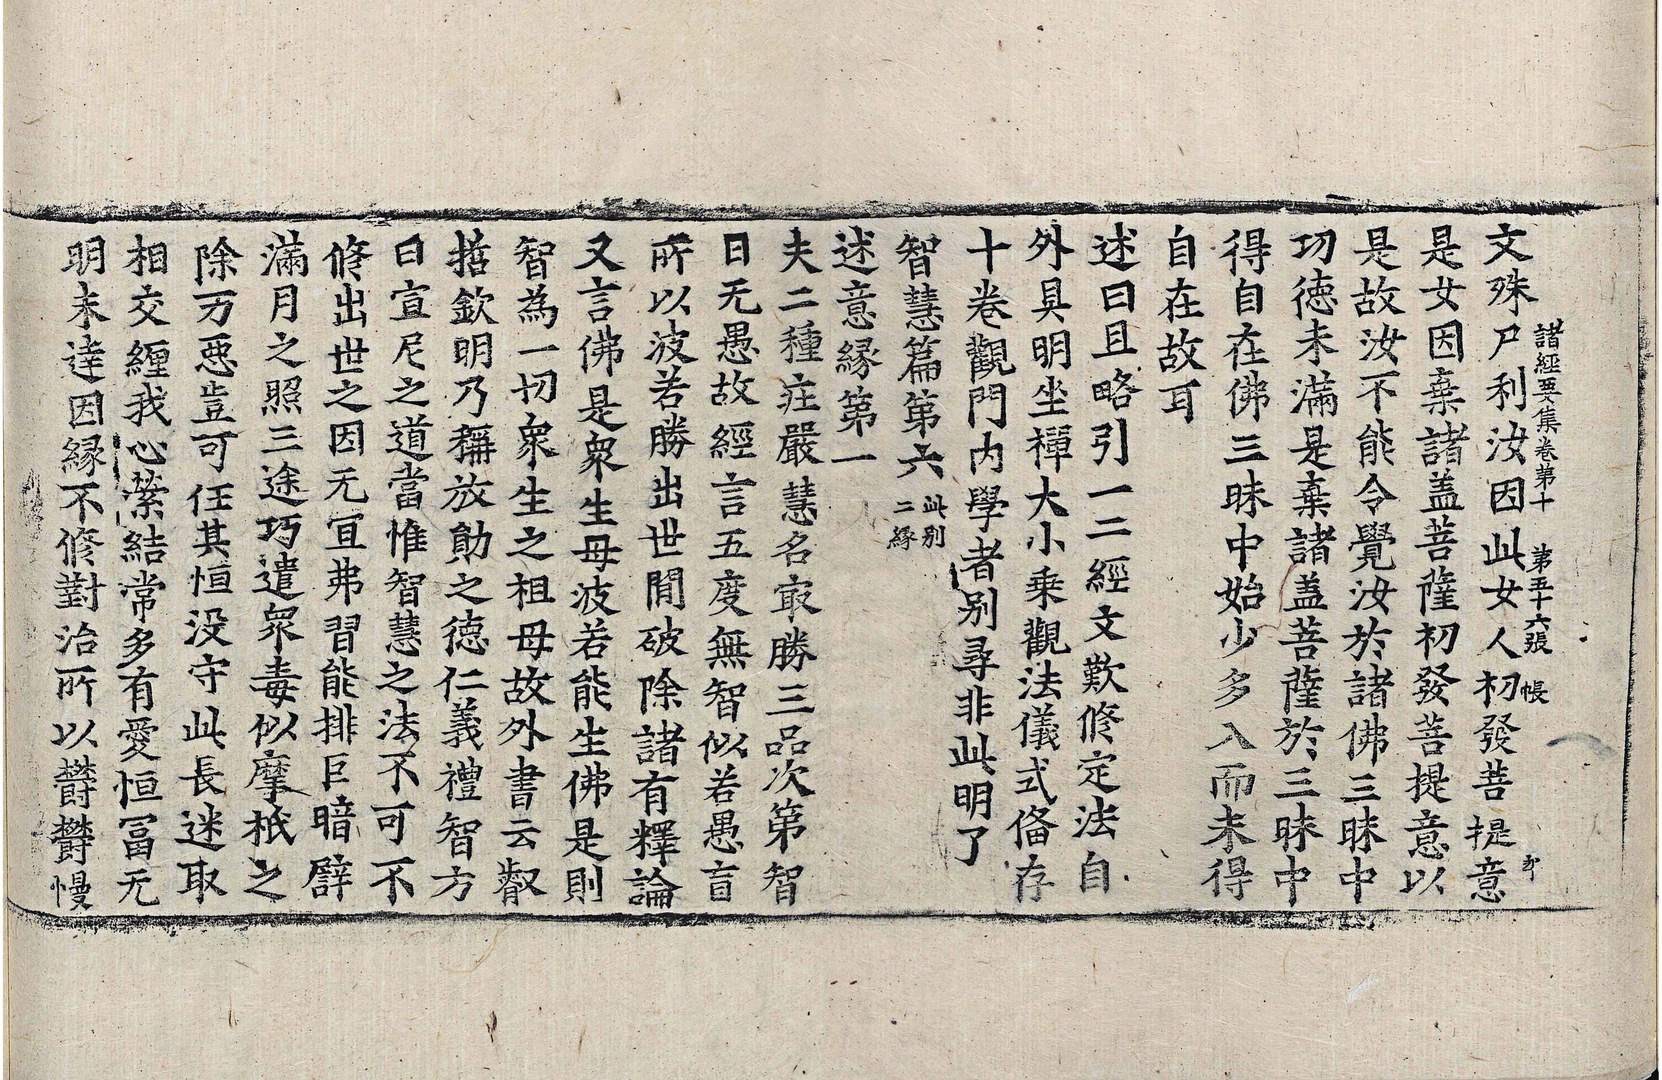 諸經要集卷第十 第五十六張 帳
文殊尸利汝因此女人初發菩提意
是女因棄諸盖菩薩初發菩提意以
是故汝不能令覺汝於諸佛三昧中
功德未滿是棄諸盖菩薩於三昧中
得自在佛三昧中始少多入而未得
自在故耳
述曰且略引一二經文歎修定法自
外具明坐禪大小乘觀法儀式俻存
十卷觀門内學者别尋非此明了
智慧篇第六 此别二緣
述意緣第一
夫二種莊嚴慧名㝡勝三品次第智
曰无愚故經言五度無智似若愚盲
所以波若勝出世間破除諸有釋論
又言佛是衆生母波若能生佛是則
智為一切衆生之祖母故外書云叡
哲欽明乃稱放勛之德仁義禮智方
曰宣尼之道當惟智慧之法不可不
修出世之因无宜弗習能排巨暗譬
滿月之照三途巧遣衆毒似摩祇之
除万惡豈可任其恒没守此長迷取
相交纒我心縈結常多有愛恒冨无
明未達因緣不修對治所以欝欝慢